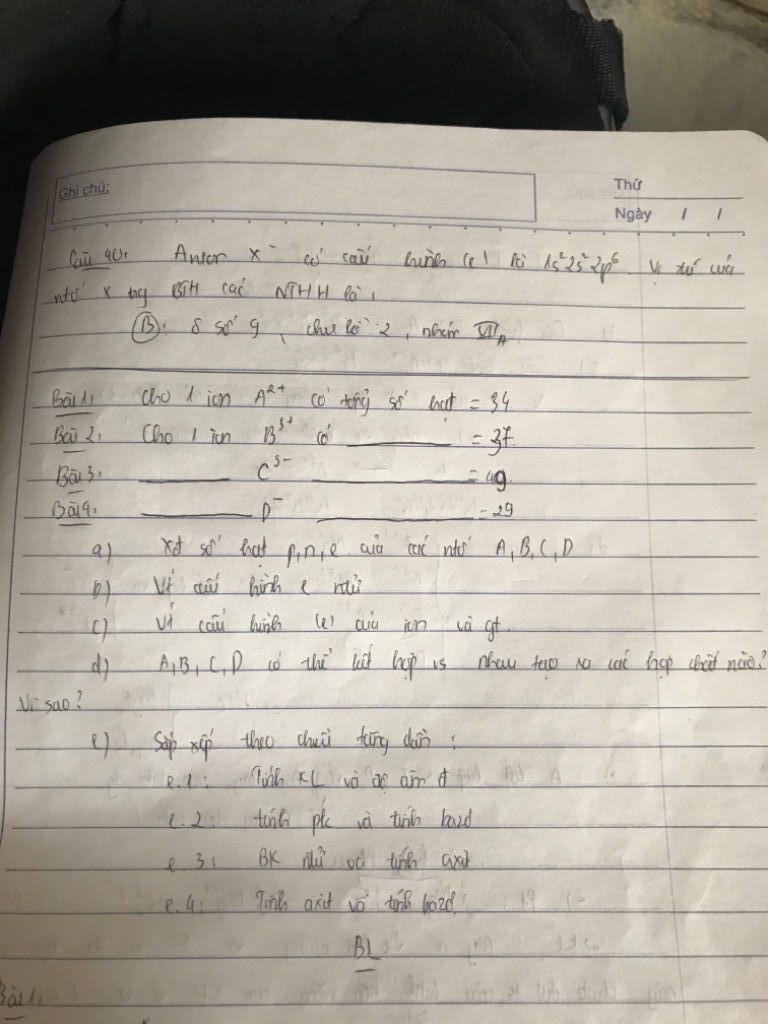 Ghi chú:
Thứ
Ngày / /
Câu 40: Anion X⁻ có cấu hình (e) là 1s²2s²2p⁶. Vị trí của
ntố X trg BTH các NTHH là:
(B): ô số 9, chu kì 2, nhóm VII_A
Bài 1: Cho 1 ion A²⁺ có tổng số hạt = 34
Bài 2: Cho 1 ion B³⁺ có ______ = 37
Bài 3: ______ C³⁻ ______ = 49
Bài 4: ______ D⁻ ______ = 29
a) Xđ số hạt p,n,e của các ntố A,B,C,D
b) Vt cấu hình e ntử
c) Vt cấu hình (e) của ion và gt.
d) A,B,C,D có thể kết hợp vs nhau tạo ra các hợp chất nào?
Vì sao?
e) Sắp xếp theo chiều tăng dần:
e.1: Tính KL và độ âm đ
e.2: tính pk và tính bazơ
e.3: BK ntử và tính axit
e.4: Tính axit và tính bazơ.
BL
Bài 1: